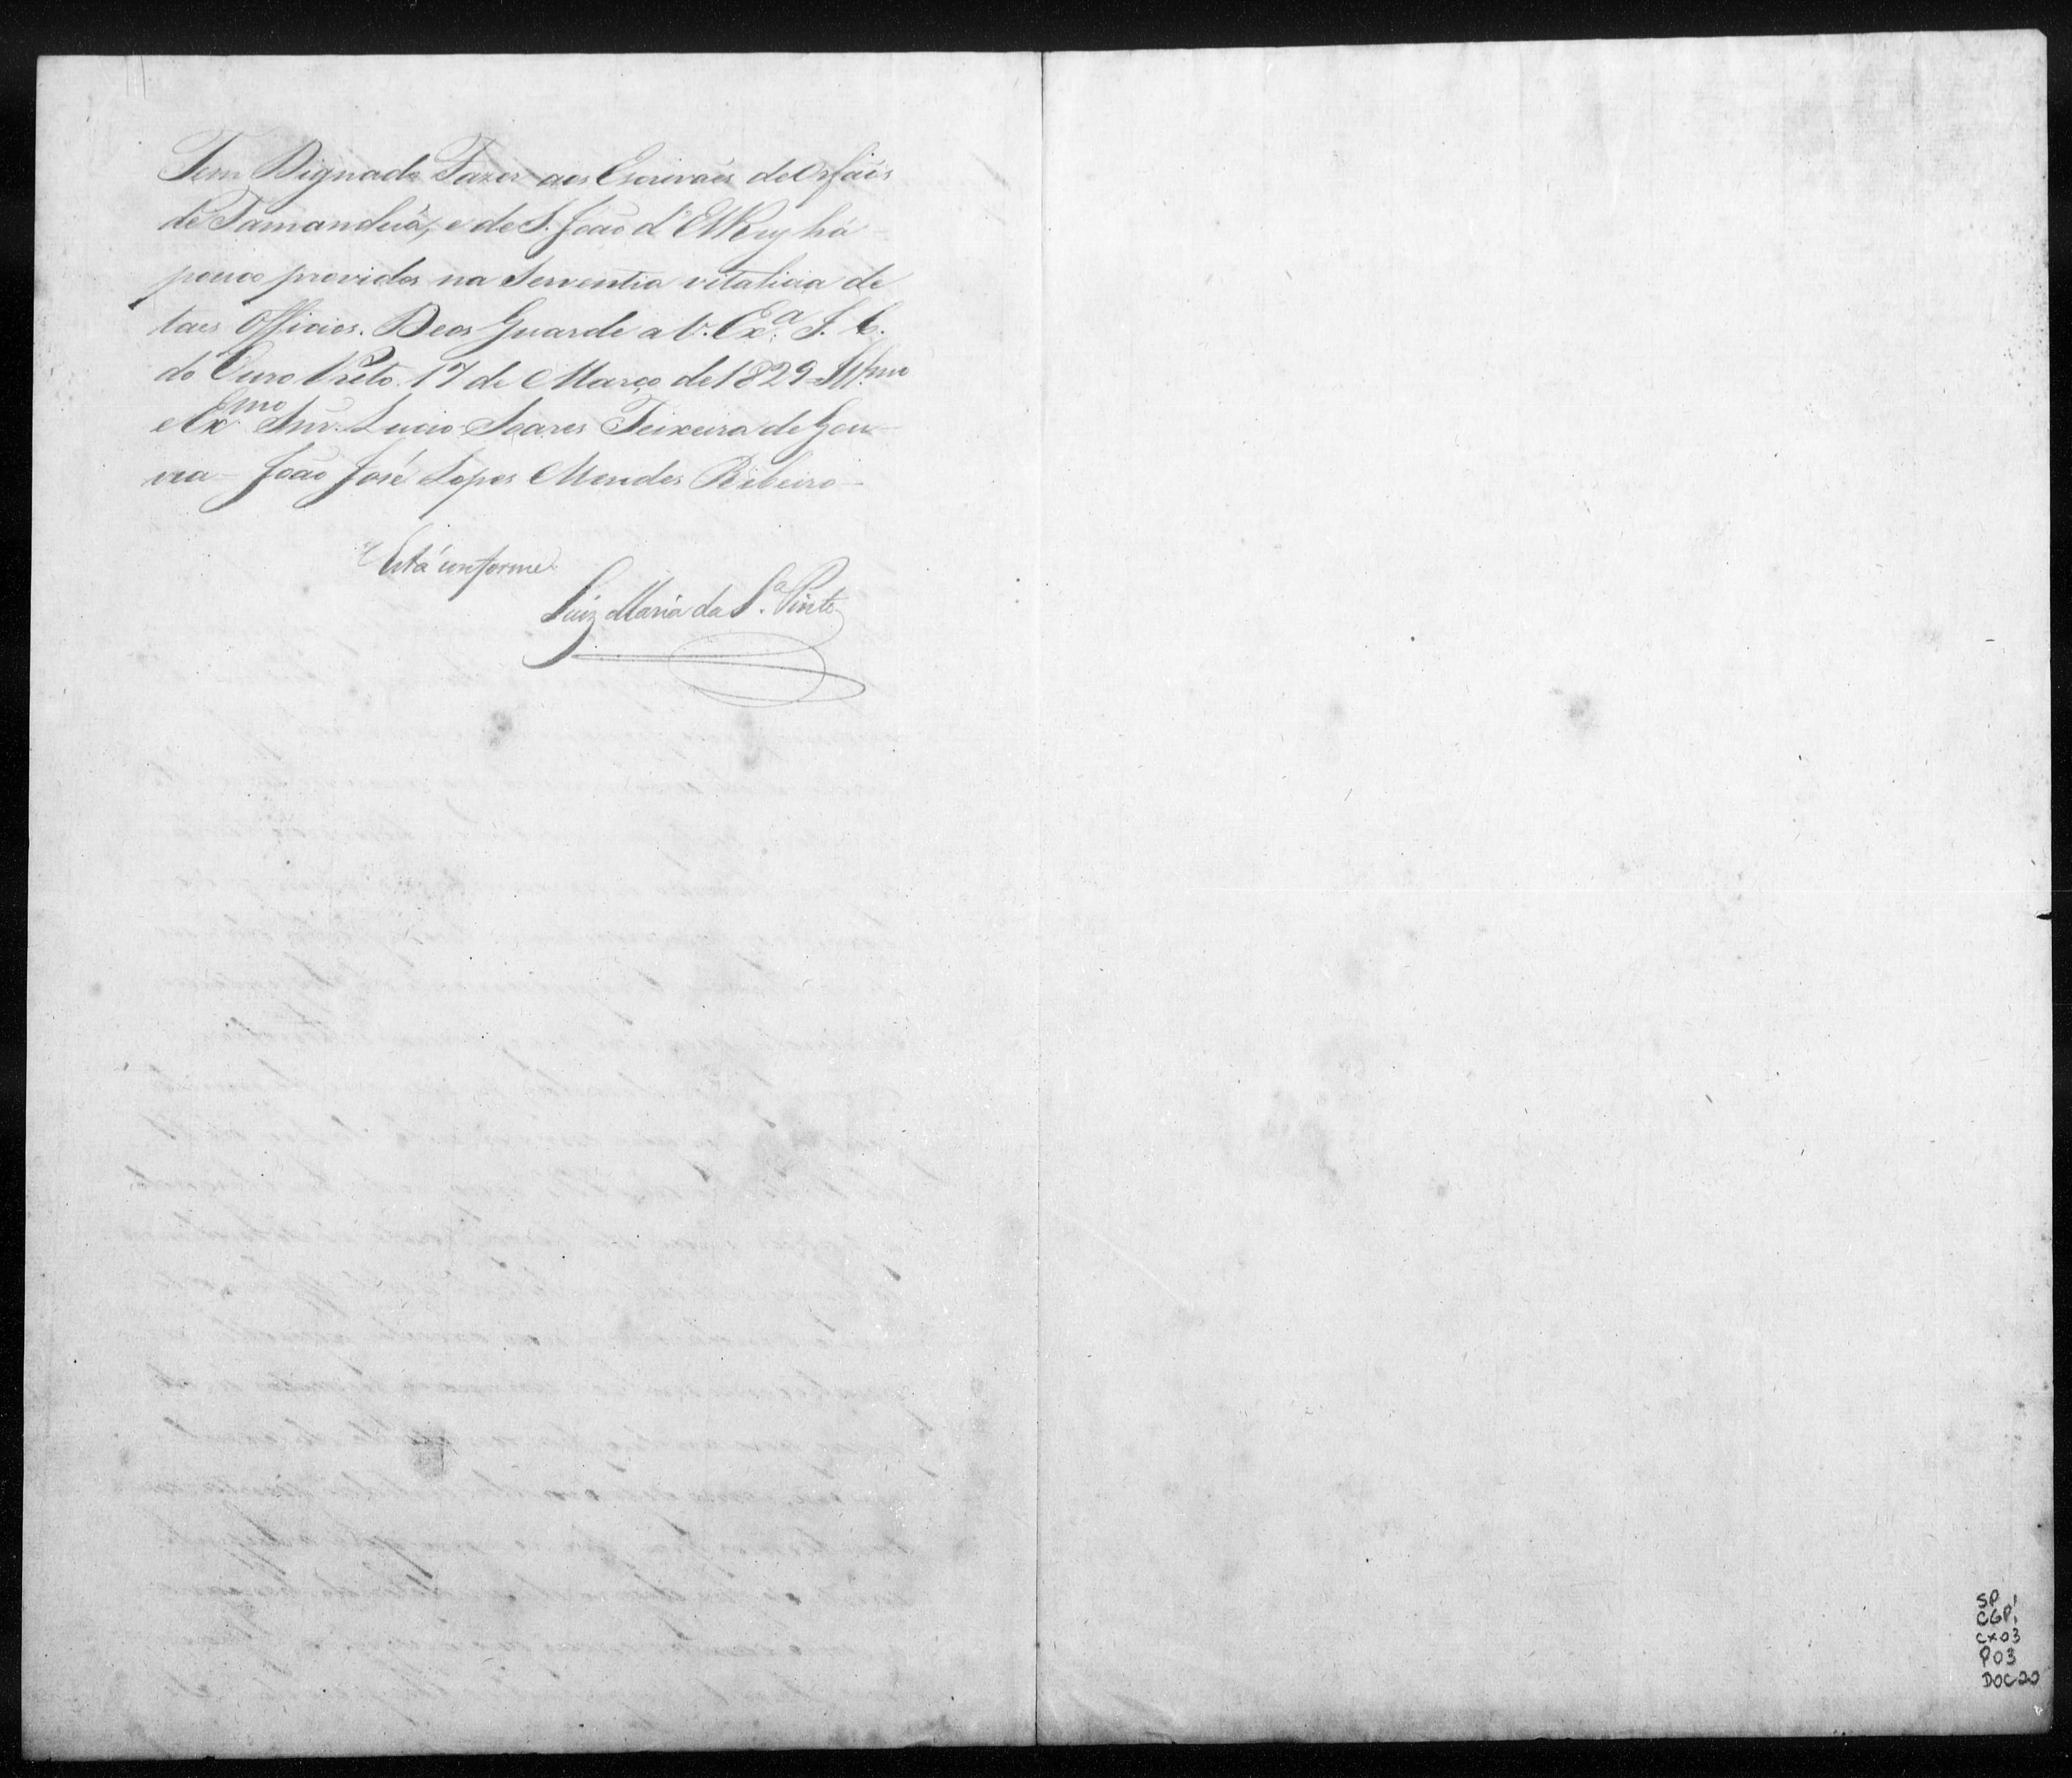 Tem Dignado Fazer aos Escrivães de Orfãos
de Tamanduá, e de S. João d'ElRey há
pouco providos na Serventia vitalicia de
taes Officios. Deos Guarde a V. Ex.ª I. C.
do Ouro Preto 17 de Março de 1829 = Ill.mo
e Ex.mo Snr. Lucio Soares Teixeira de Gou-
vea - João José Lopes Mendes Ribeiro -
Está conforme.
Luiz Maria da S.ª Pinto
SP
CGP1
CX03
P03
DOC20